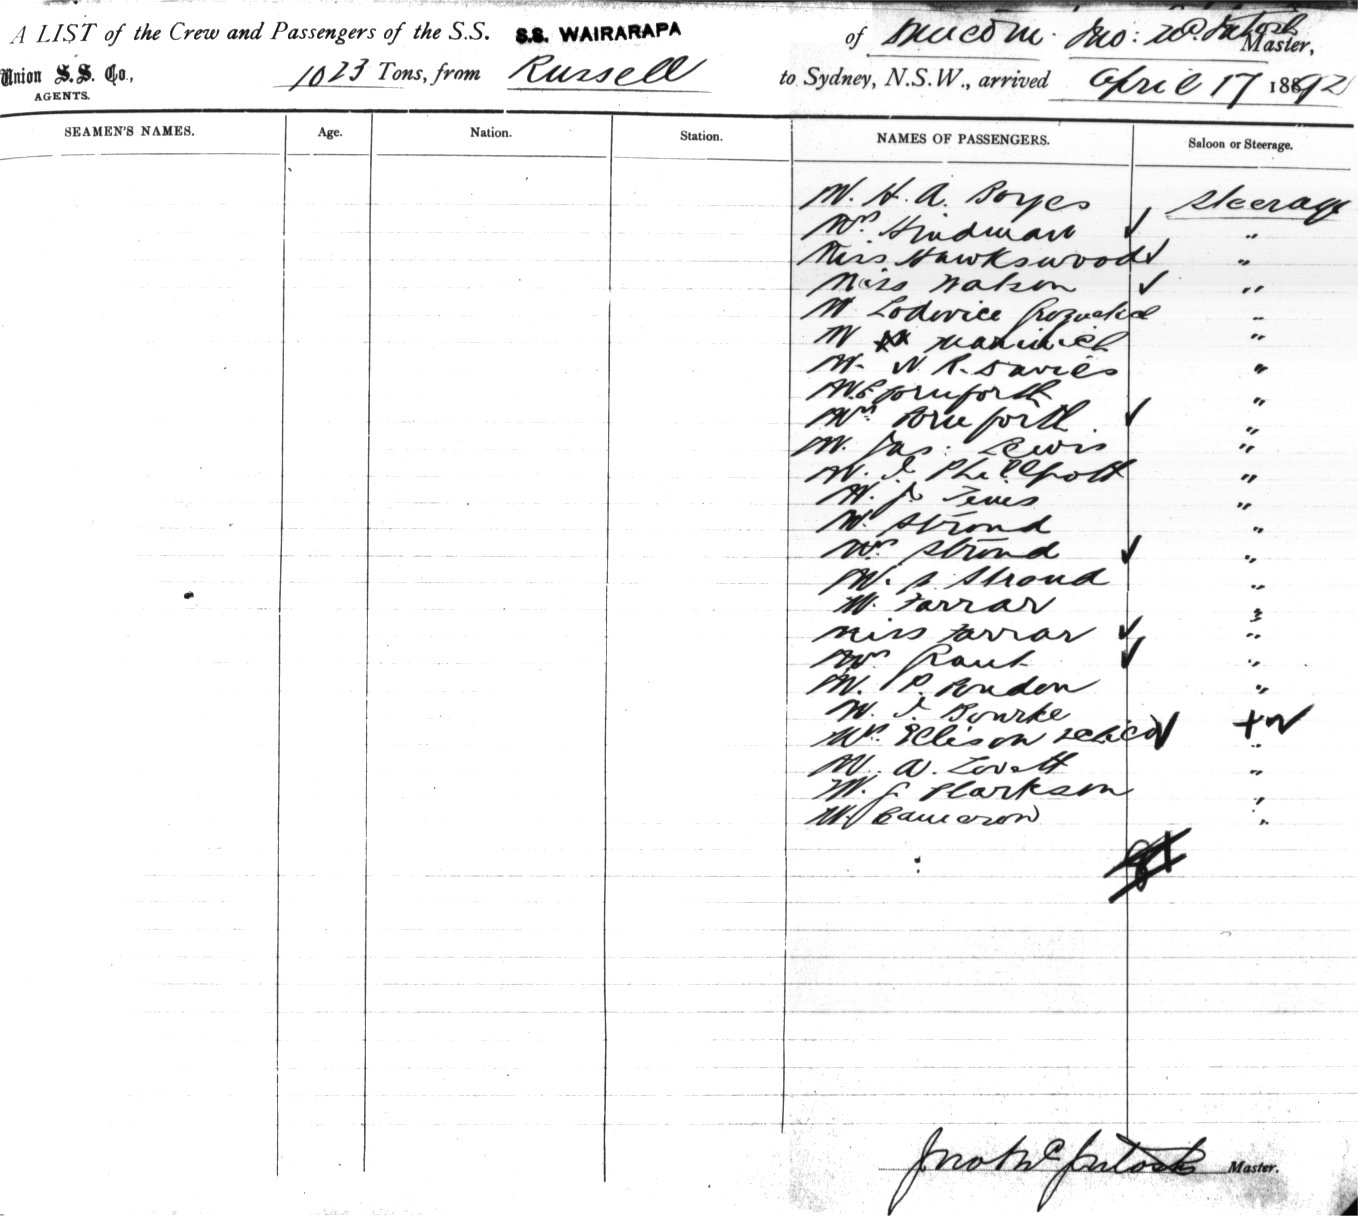 A LIST of the Crew and Passengers of the S.S. S.S. WAIRARAPA of Jno: McIntosh Master,
Union S.S. Co., 1023 Tons, from Russell to Sydney, N.S.W., arrived April 17 1892
AGENTS.
SEAMEN'S NAMES. Age. Nation. Station. NAMES OF PASSENGERS. Saloon or Steerage.
Mr. H. A. Boyes Steerage
Mrs Hindman ✓ "
Miss Hawkswood ✓ "
Miss Watson ✓ "
Mr Lodovice "
Mr "
Mr. W. R. Davies "
Mr E Cornforth "
Mrs Cornforth ✓ "
Mr. Jas: Lewis "
Mr. J. Phillpott "
Mr. J. "
Mr. Stroud "
Mrs Stroud ✓ "
Mr. S. Stroud "
Mr. Farrar "
Miss Farrar ✓ "
Mrs Grant ✓ "
Mr. P. "
Mr. J. Bourke "
Mrs. Ellison & Child ✓ "
Mr. A. Lovett "
Mr. J. Clarkson "
Mr. Cameron "
Jno McIntosh Master.